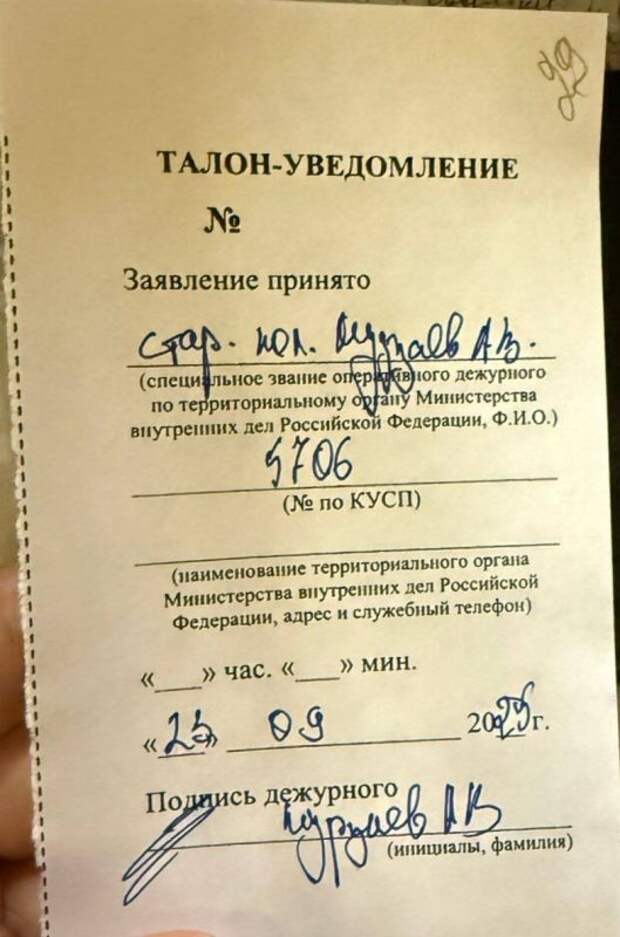 29
ТАЛОН-УВЕДОМЛЕНИЕ
№
Заявление принято
стар. пол. А.В.
(специальное звание оперативного дежурного
по территориальному органу Министерства
внутренних дел Российской Федерации, Ф.И.О.)
5706
(№ по КУСП)
(наименование территориального органа
Министерства внутренних дел Российской
Федерации, адрес и служебный телефон)
«___» час. «___» мин.
«23» 09 2025 г.
Подпись дежурного
АВ
(инициалы, фамилия)